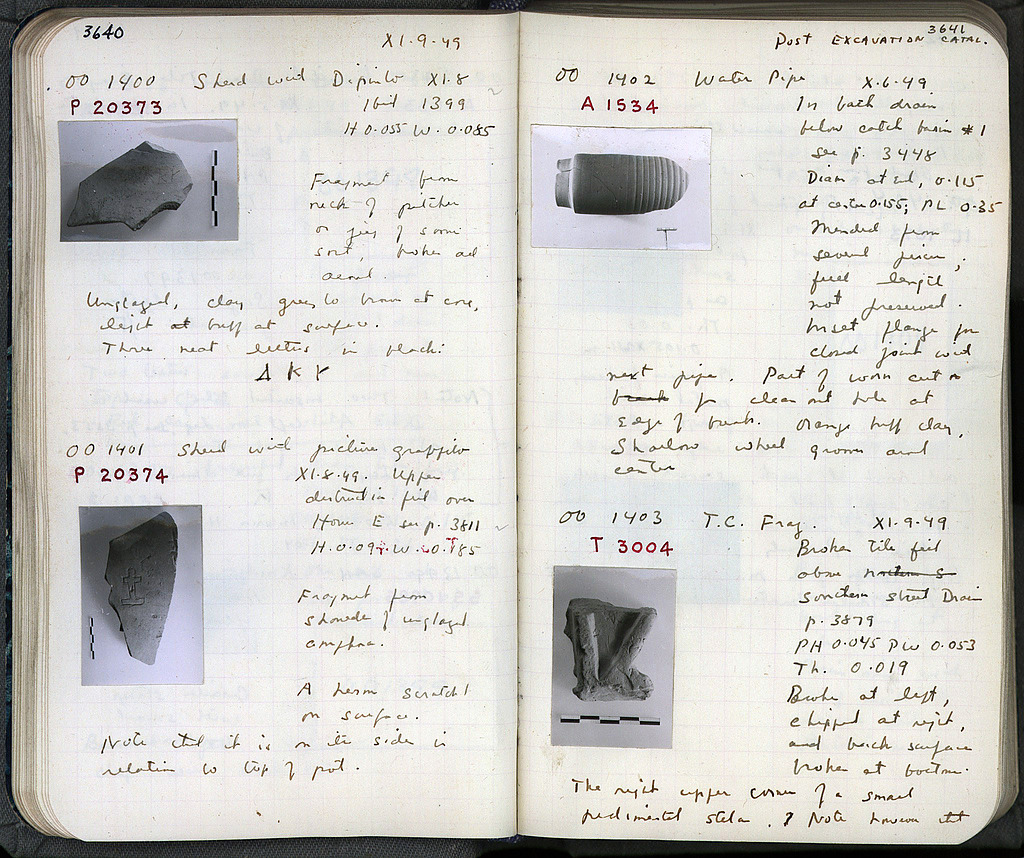 3640
XI·9·49
OO 1400 Sherd with Dipinto XI·8
P 20373
1bid 1399
H 0.055 W. 0.085
Fragment from
neck of pitcher
or jug of some
sort, broken all
around.
Unglazed, clay grey to brown at core,
light at buff at surface.
Three neat letters in black:
Δ K Y
OO 1401 Sherd with picture graffito
P 20374
XI·8·49. Upper
destruction fill over
House E see p. 3811
H. 0.09 W.
Fragment from
shoulder of unglazed
amphora.
A herm scratch'd
on surface.
Note that it is on its side in
relation to top of pot.
3641
Post EXCAVATION CATAL.
OO 1402 Water Pipe X·6·49
A 1534
In bath drain
below catch basin #1
see p. 3448
Diam at end, 0.115
at center 0.155; PL 0.35
Mended from
several pieces;
full length
not preserved.
Inset flange for
closed joint with
next pipe. Part of worn cut on
break for clean out hole at
Edge of break. Orange buff clay,
Shallow wheel grooves around
center
OO 1403 T.C. Frag. XI·9·49
T 3004
Broken tile fill
above northern S
southern street Drain
p. 3879
PH 0.045 PW 0.053
Th. 0.019
Broke at left,
chipped at right,
and back surface
broken at bottom.
The right upper corner of a small
pedimental stele. ? Note however that